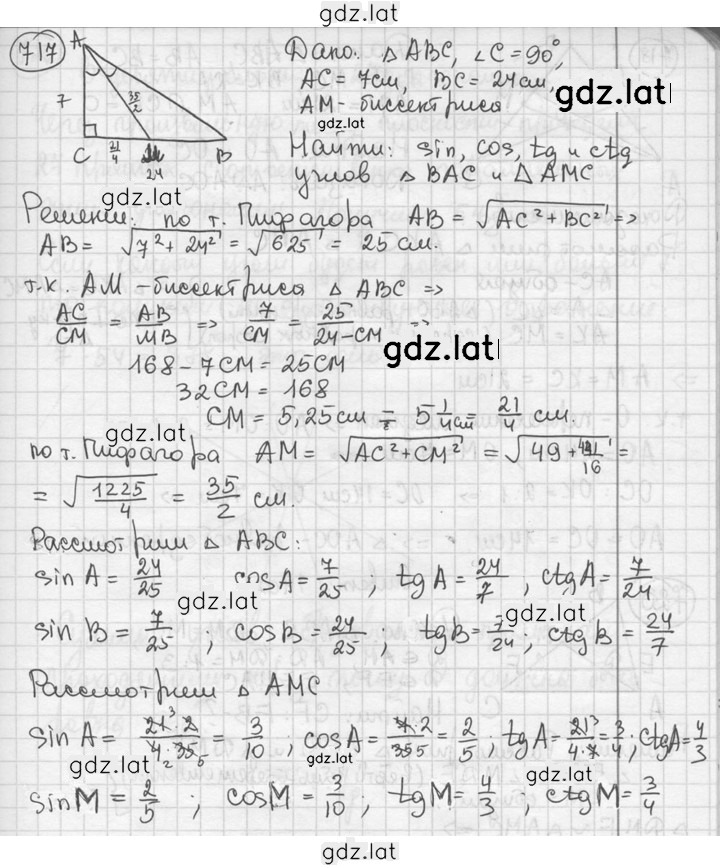 gdz.lat
717
A
7
35/2
C 21/4 M B
24
Дано: △ ABC, ∠C = 90°,
AC = 7см, BC = 24см,
AM - биссектриса
gdz.lat
gdz.lat
Найти: sin, cos, tg и ctg
углов △ BAC и △ AMC
gdz.lat
Решение: по т. Пифагора AB = √(AC² + BC²) =>
AB = √(7² + 24²) = √625 = 25 см.
т.к. AM - биссектриса △ ABC =>
AC/CM = AB/MB => 7/CM = 25/(24 - CM) =>
gdz.lat
168 - 7CM = 25CM
32CM = 168
CM = 5,25см = 5 1/4 см = 21/4 см.
gdz.lat
по т. Пифагора AM = √(AC² + CM²) = √(49 + 441/16) =
= √(1225/4) = 35/2 см.
gdz.lat
Рассмотрим △ ABC:
sin A = 24/25 cos A = 7/25, tg A = 24/7, ctg A = 7/24
gdz.lat
gdz.lat
sin B = 7/25; cos B = 24/25; tg B = 7/24; ctg B = 24/7
Рассмотрим △ AMC
sin A = 21·2/4·35 = 3/10; cos A = 7·2/35 = 2/5; tg A = 21/4·7 = 3/4; ctg A = 4/3
gdz.lat
gdz.lat
sin M = 2/5; cos M = 3/10, tg M = 4/3; ctg M = 3/4
gdz.lat